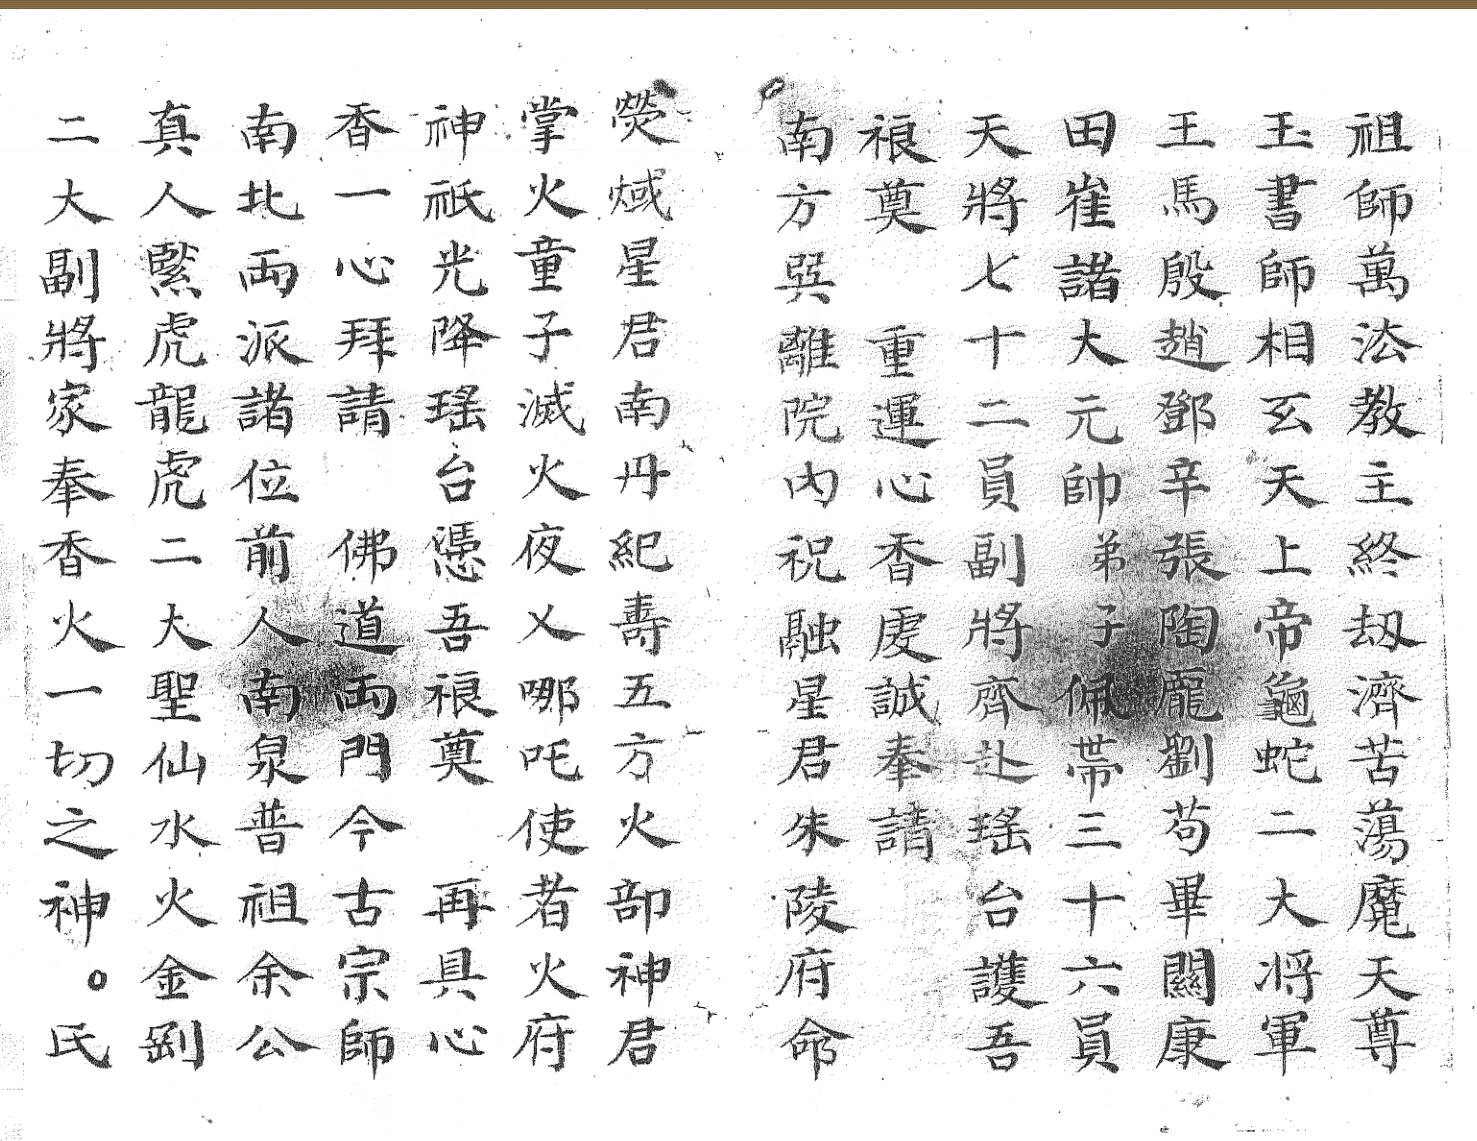 祖師萬法教主終刼濟苦蕩魔天尊
玉書師相玄天上帝龜蛇二大将軍
王馬殷趙鄧辛張陶龐劉苟畢關康
田崔諸大元帥弟子佩帶三十六員
天將七十二員副將齊赴瑤台護吾
祿奠　重運心香虔誠奉請
南方巽離院内祝融星君朱陵府命
熒惑星君南丹紀壽五方火部神君
掌火童子滅火夜乂哪吒使者火府
神祇光降瑤台憑吾祿奠　再具心
香一心拜請　佛道両門今古宗師
南北両派諸位前人南泉普祖余公
真人黳虎龍虎二大聖仙水火金劉
二大副將家奉香火一切之神。氏